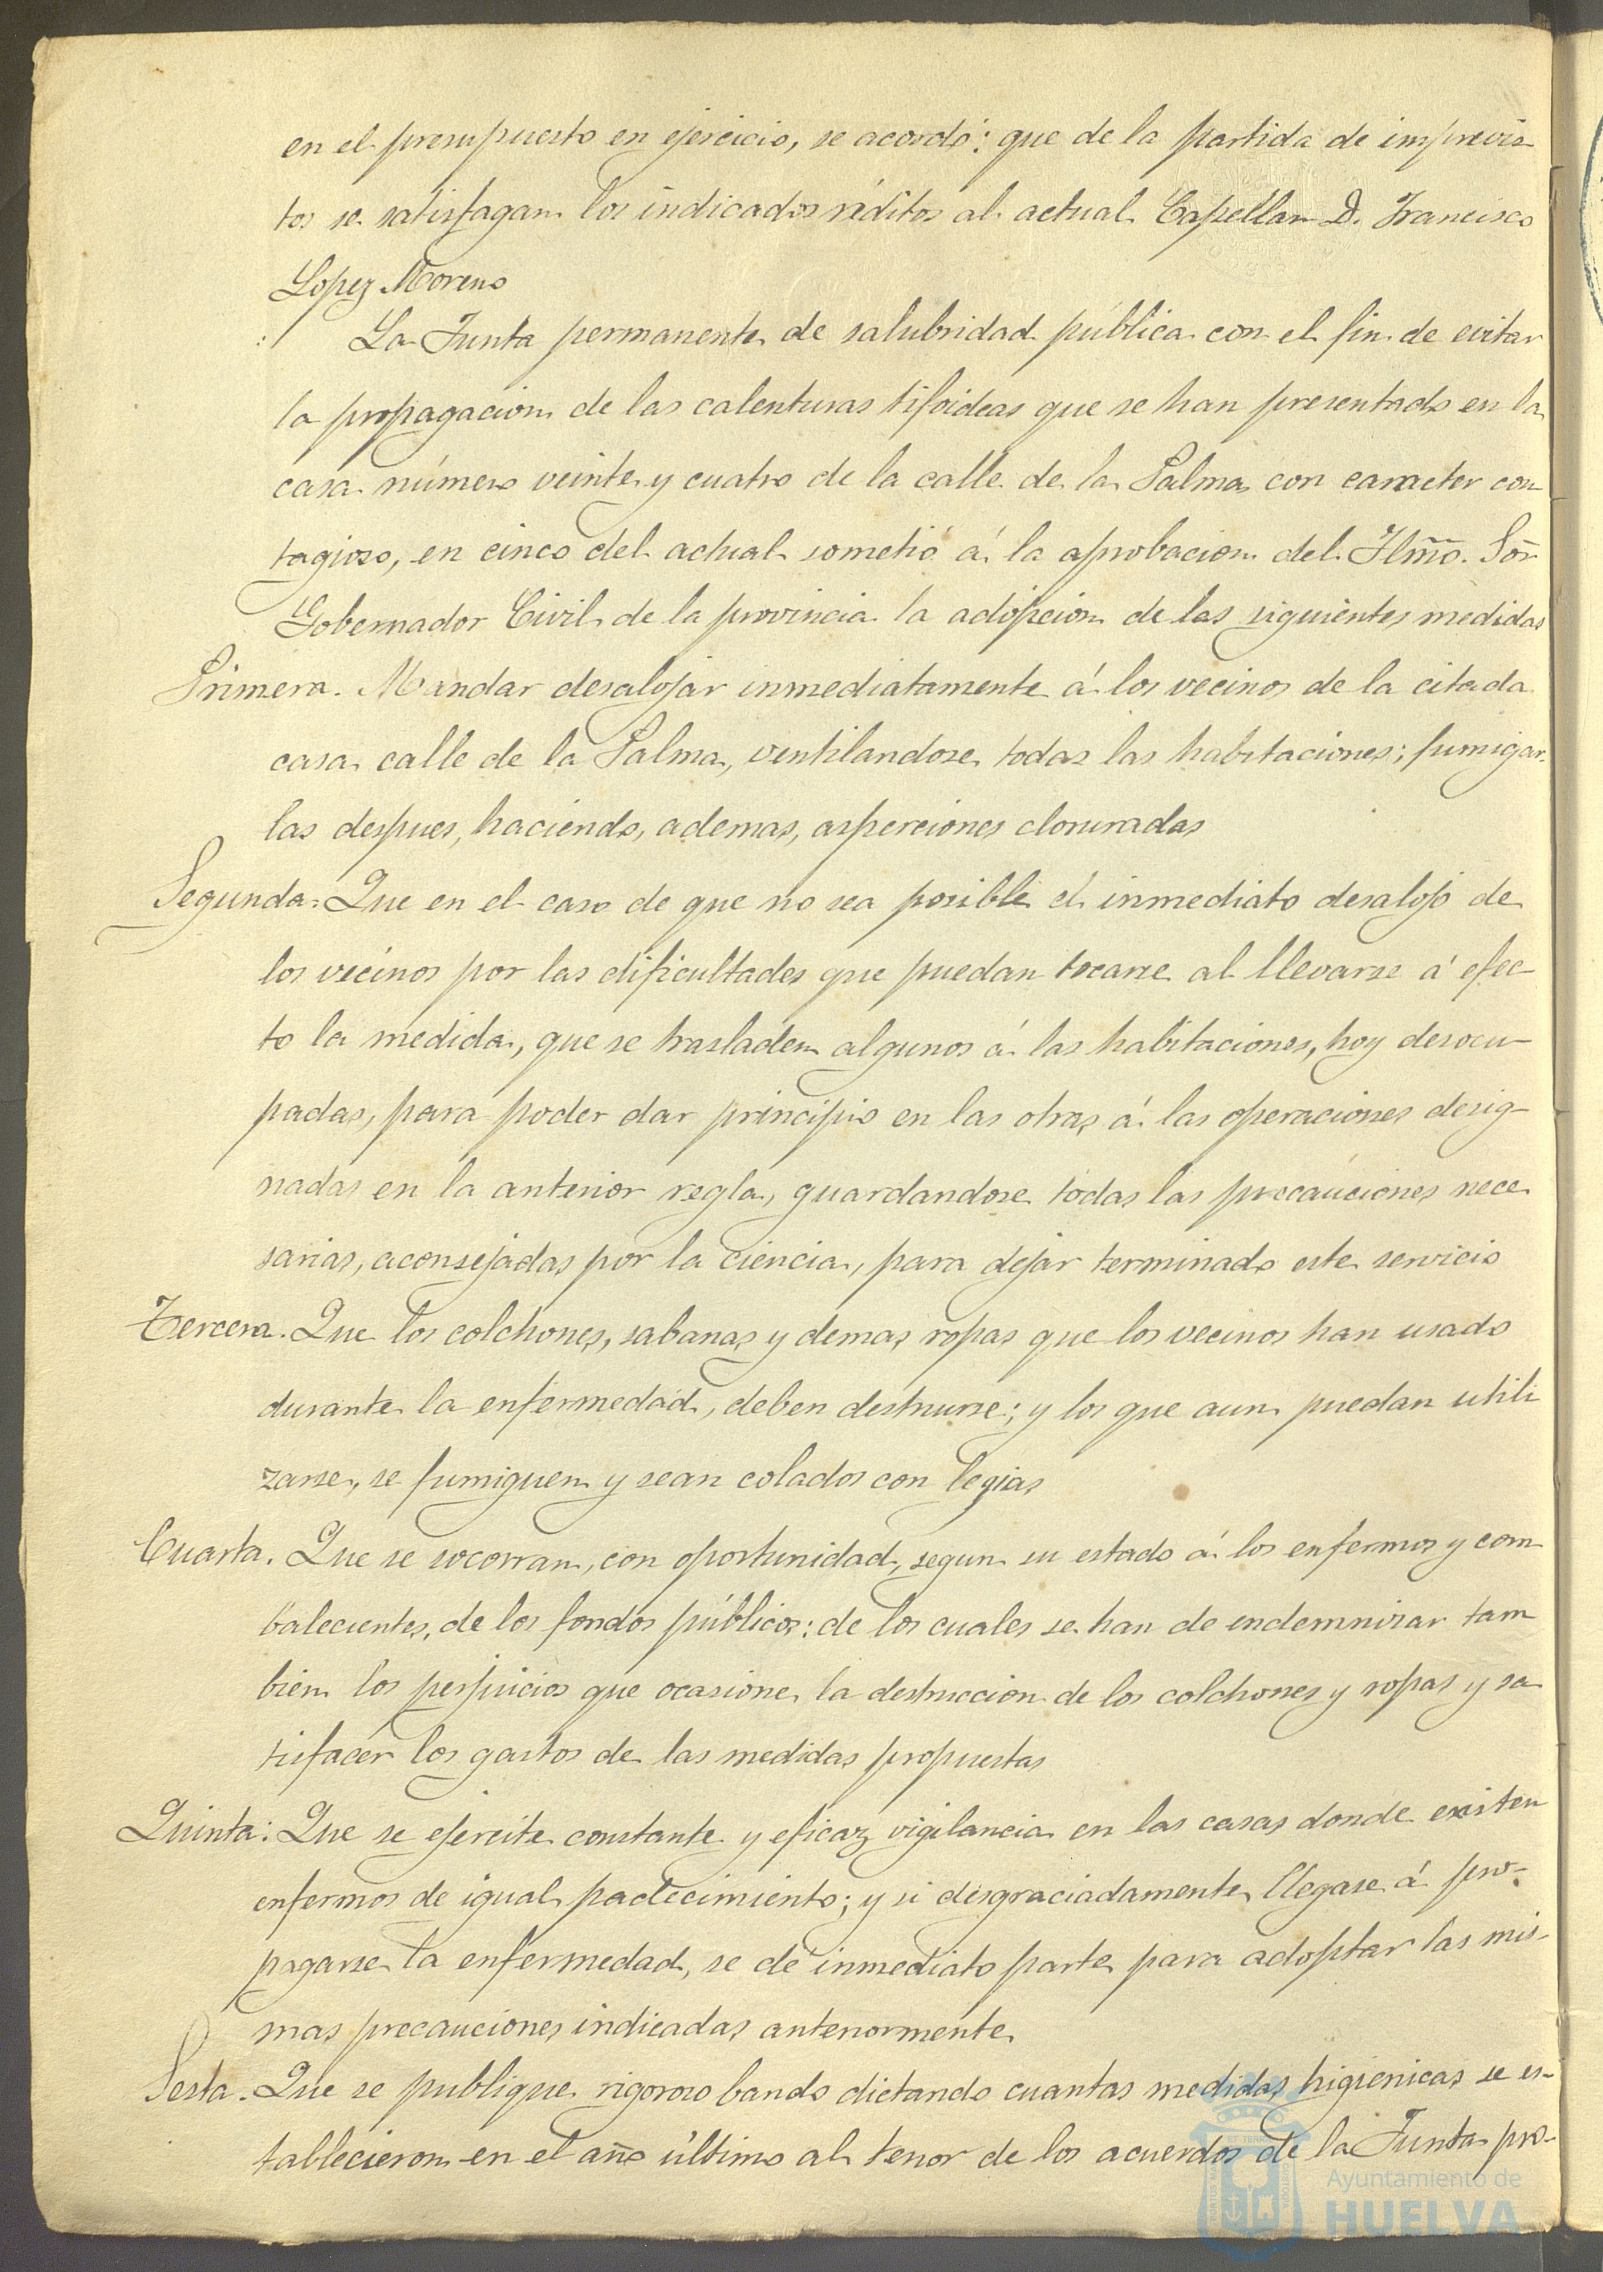 en el presupuesto en ejercicio, se acordó: que de la partida de imprevis-
tos se satisfagan los indicados réditos al actual Capellan D. Francisco
Lopez Moreno
La Junta permanente de salubridad pública con el fin de evitar
la propagacion de las calenturas tifoideas que se han presentado en la
casa número veinte y cuatro de la calle de la Palma con caracter con-
tagioso, en cinco del actual sometió á la aprobacion del Ilmo. Sor.
Gobernador Civil de la provincia la adopcion de las siguientes medidas
Primera. Mandar desalojar inmediatamente á los vecinos de la citada
casa calle de la Palma, ventilandose todas las habitaciones; fumigar-
las despues, haciendo, ademas, asperciones cloruradas
Segunda. Que en el caso de que no sea posible el inmediato desalojo de
los vecinos por las dificultades que puedan tocarse al llevarse á efec-
to la medida, que se trasladen algunos á las habitaciones, hoy desocu-
padas, para poder dar principio en las otras á las operaciones desig-
nadas en la anterior regla, guardandose todas las precauciones nece
sarias, aconsejadas por la ciencia, para dejar terminado este servicio
Tercera. Que los colchones, sabanas y demas ropas que los vecinos han usado
durante la enfermedad, deben destruirse; y los que aun puedan utili
zarse, se fumiguen y sean colados con legias
Cuarta. Que se socorran, con oportunidad, segun su estado á los enfermos y com
balecientes, de los fondos públicos: de los cuales se han de endemnizar tam
bien los perjuicios que ocasione la destruccion de los colchones y ropas y sa
tisfacer los gastos de las medidas propuestas
Quinta: Que se ejercite constante y eficaz vigilancia en las casas donde existen
enfermos de igual padecimiento; y si desgraciadamente llegase á pro-
pagarse la enfermedad, se dé inmediato parte para adoptar las mis-
mas precauciones indicadas anteriormente
Sesta. Que se publique rigoroso bando dictando cuantas medidas higienicas se es-
tablecieron en el año último al tenor de los acuerdos de la Junta pro-
Ayuntamiento de
HUELVA